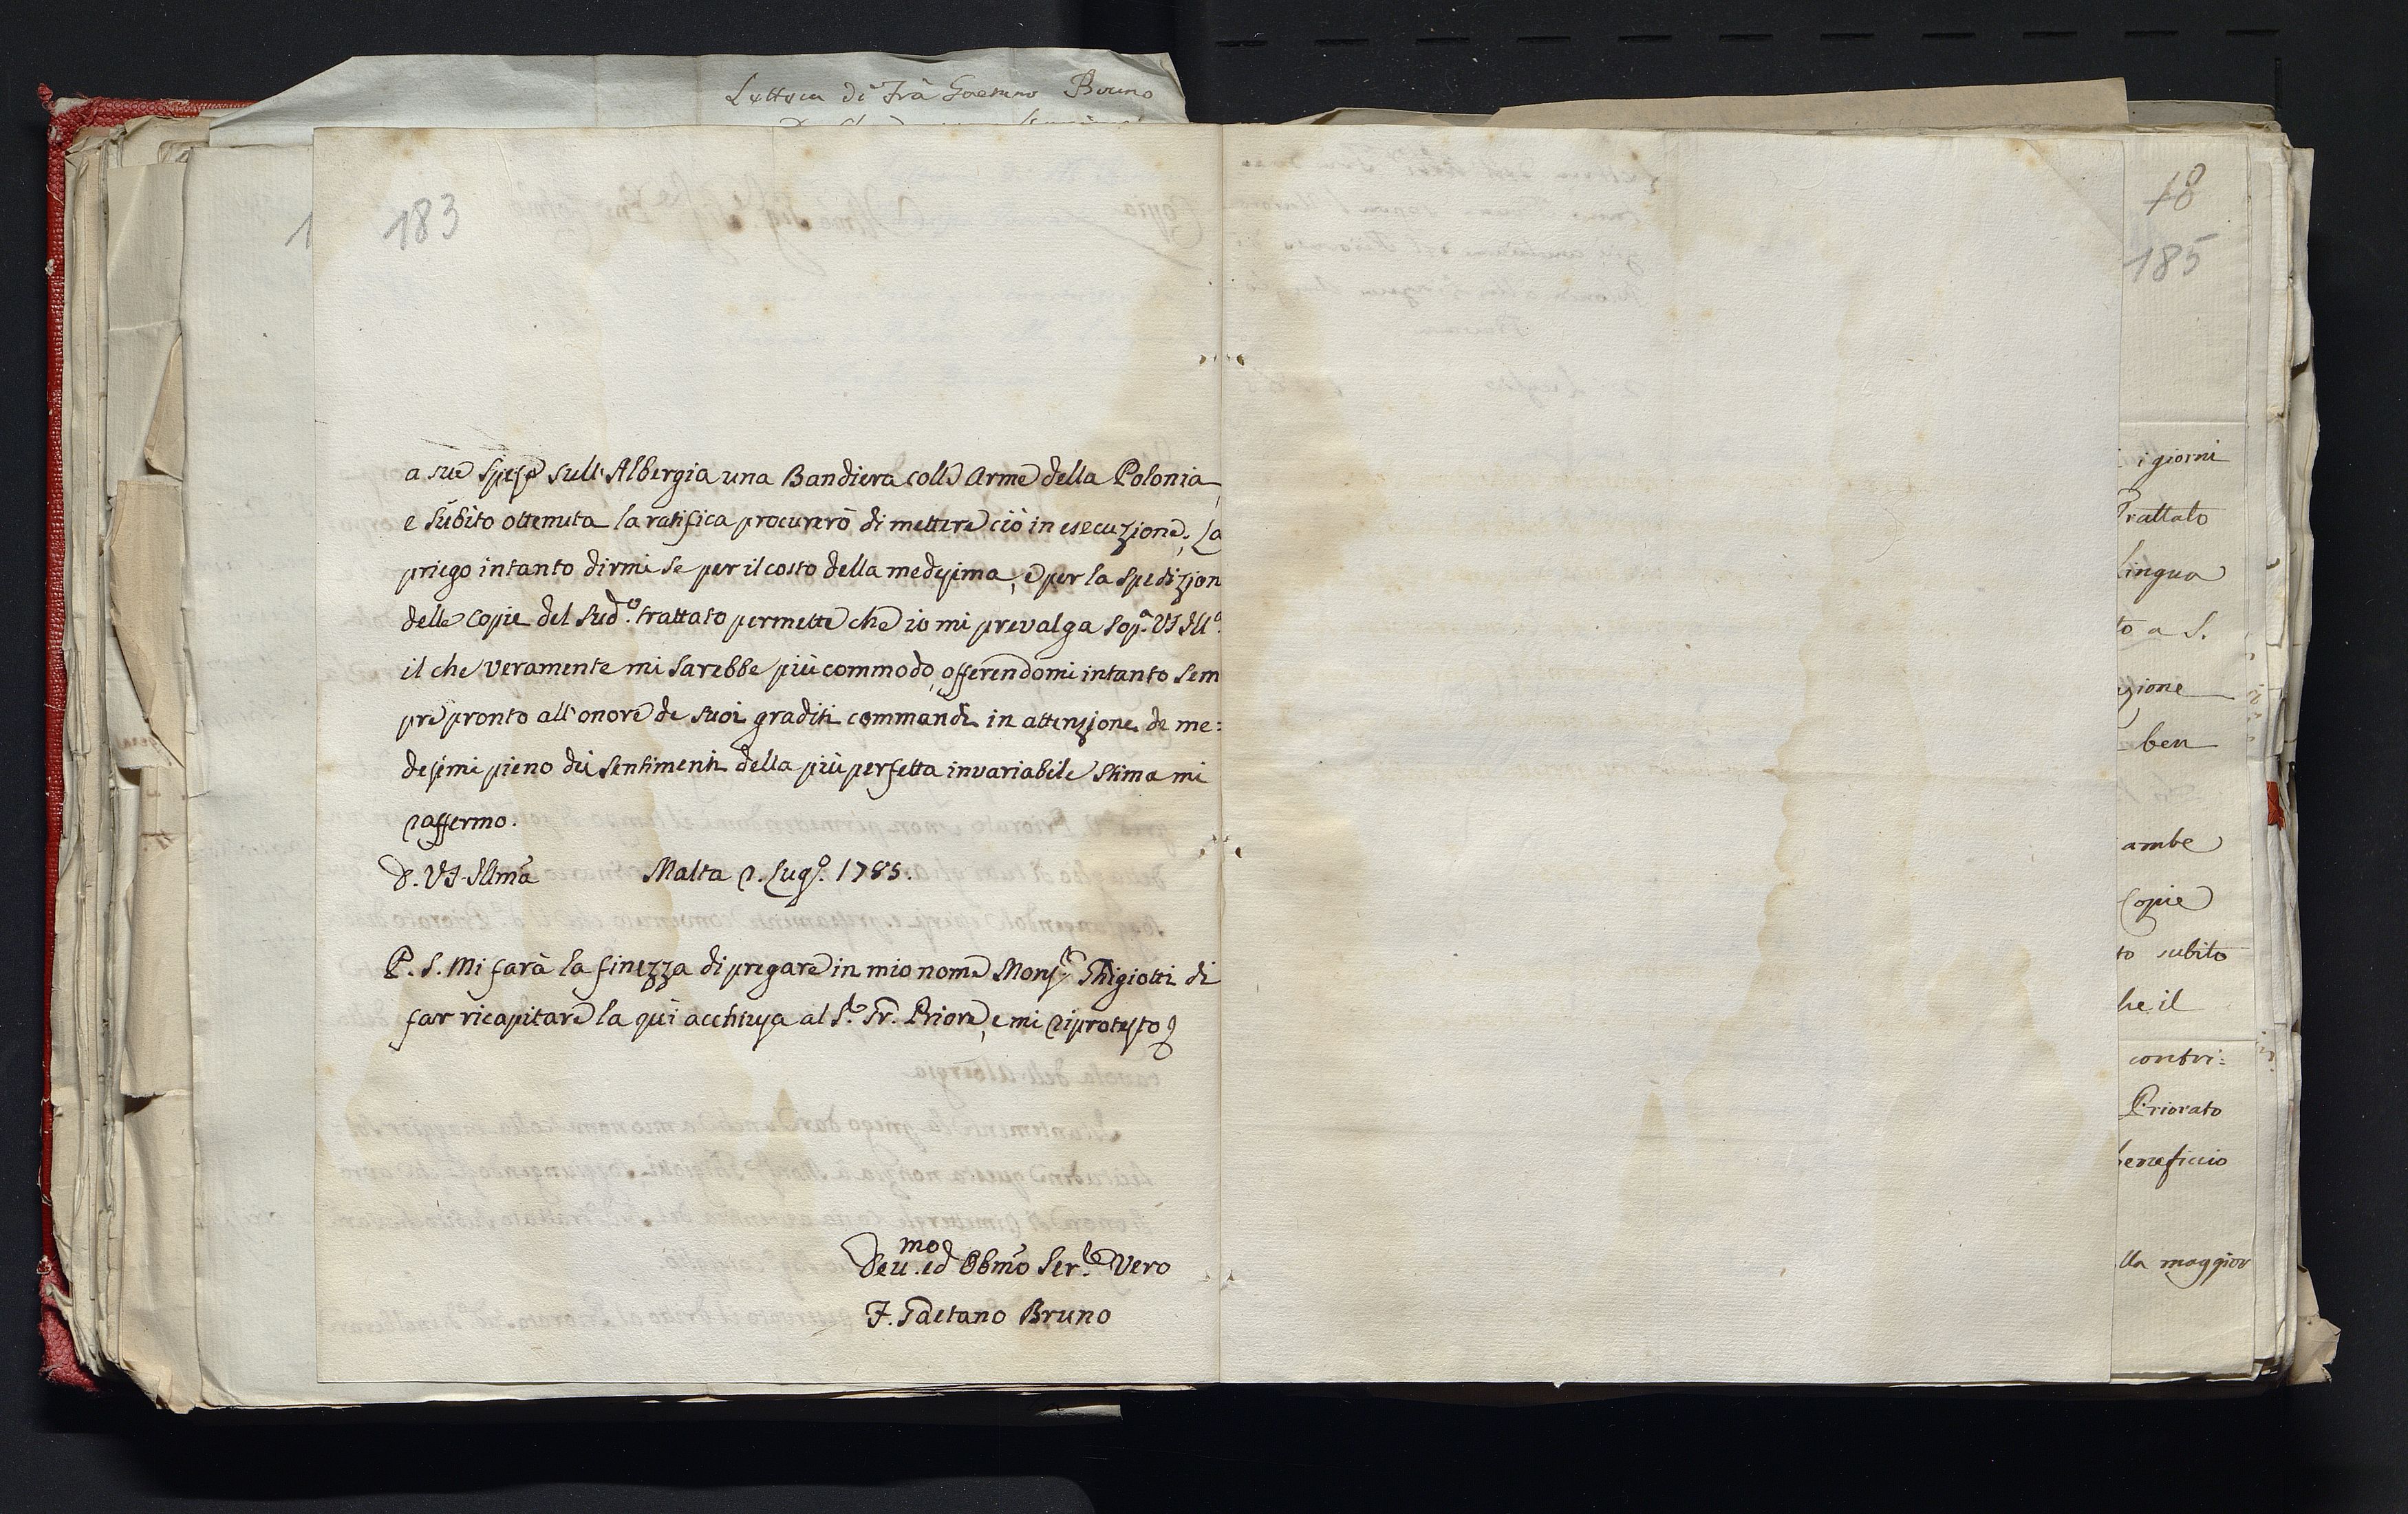 Lettera di Frà Gaetano Bruno
183
a sue spese sull'Albergia una Bandiera colle Arme della Polonia,
e subito ottenuta la ratifica procurerò di mettere ciò in esecuzione. La
priego intanto dirmi se per il costo della medesima, e per la spedizion
delle copie del sud.º trattato permette che io mi prevalga sop.ª VS Ill.ª
il che veramente mi sarebbe più commodo, offerendomi intanto sem
pre pronto all'onore de suoi graditi commandi in attenzione de me:
desimi pieno dei sentimenti della più perfetta invariabile stima mi
raffermo.
D. VS Illmã Malta 2. Lug.º 1785.
P. S. Mi farà la finezza di pregare in mio nome Mons.r Ghigiotti di
far ricapitare la qui acchiusa al S.r Gr. Priore, e mi riprotesto
Deu.mo ed Obmõ Ser.le Vero
F. Gaetano Bruno
18
185
i giorni
Trattato
lingua
to a S.
gione
ben
ambe
Copie
to subito
he il
contri:
Priorato
beneficio
lla maggior